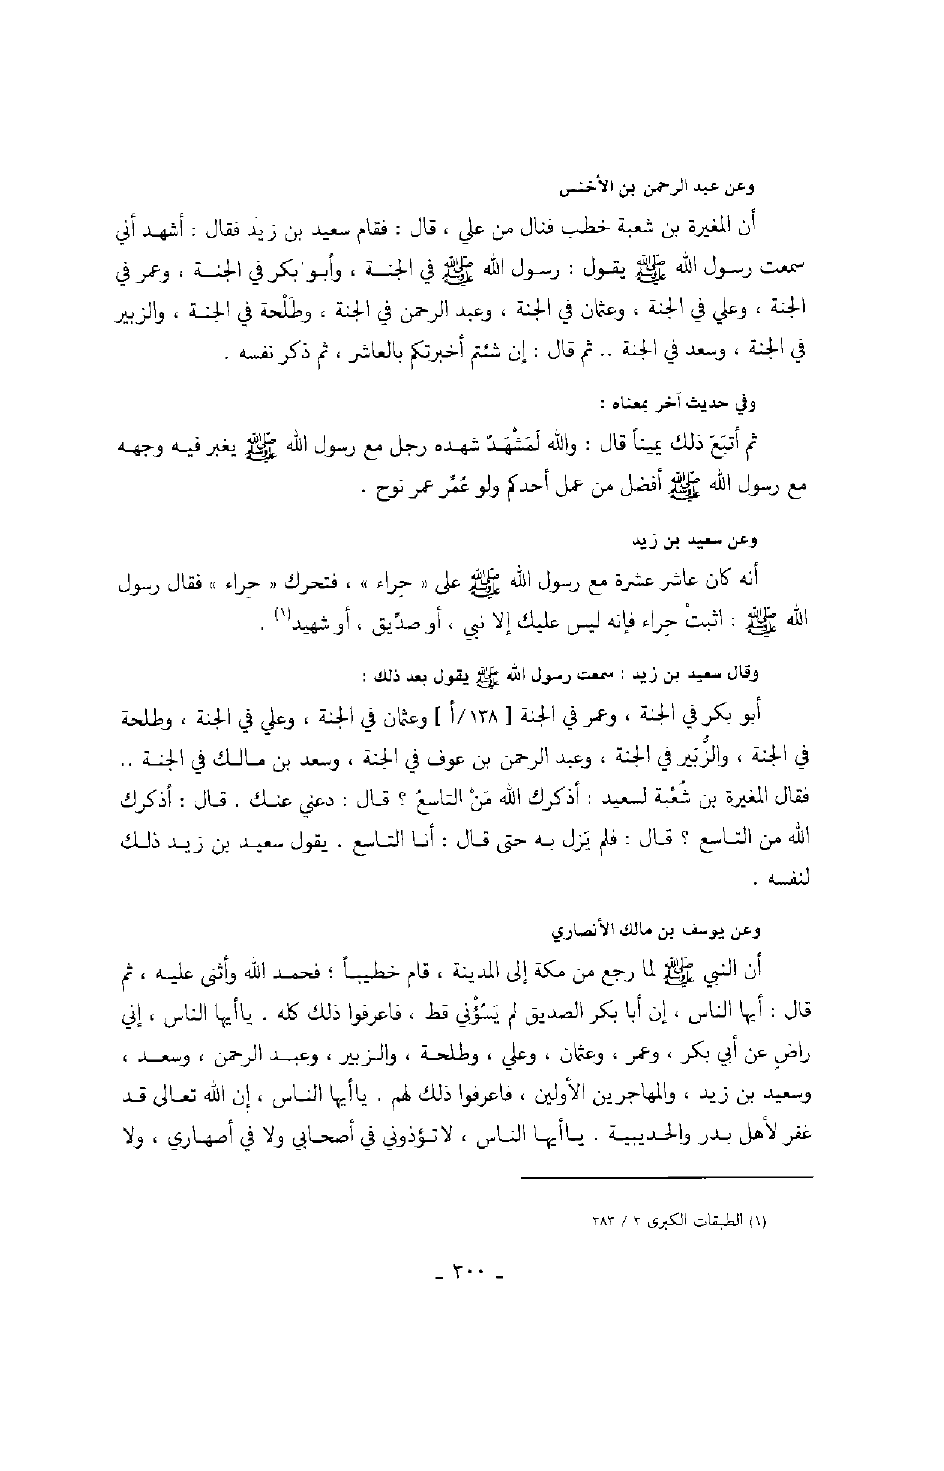 وعن عبد الرحمن بن الأخنس
أن المغيرة بن شعبة خطب فنال من علي ، قال : فقام سعيد بن زيد فقال : أشهد أني
سمعت رسول الله ﷺ يقول : رسول الله ﷺ في الجنة ، وأبو بكر في الجنة ، وعمر في
الجنة ، وعلي في الجنة ، وعثمان في الجنة ، وعبد الرحمن في الجنة ، وطَلْحة في الجنة ، والزبير
في الجنة ، وسعد في الجنة .. ثم قال : إن شئتم أخبرتكم بالعاشر ، ثم ذكر نفسه .
وفي حديث آخر بمعناه :
ثم أتبَعَ ذلك يميناً قال : والله لَمَشْهَدٌ شهده رجل مع رسول الله ﷺ يغبر فيه وجهه
مع رسول الله ﷺ أفضل من عمل أحدكم ولو عُمِّر عمر نوح .
وعن سعيد بن زيد
أنه كان عاشر عشرة مع رسول الله ﷺ على « حِراء » ، فتحرك « حِراء » فقال رسول
الله ﷺ : اثبتْ حِراء فإنه ليس عليك إلا نبي ، أو صدِّيق ، أو شهيد(١) .
وقال سعيد بن زيد : سمعت رسول الله ﷺ يقول بعد ذلك :
أبو بكر في الجنة ، وعمر في الجنة [ ١٣٨/أ ] وعثمان في الجنة ، وعلي في الجنة ، وطلحة
في الجنة ، والزُّبَير في الجنة ، وعبد الرحمن بن عوف في الجنة ، وسعد بن مالك في الجنة ..
فقال المغيرة بن شُعْبة لسعيد : أذكرك الله مَنْ التاسعُ ؟ قال : دعني عنك . قال : أذكرك
الله من التاسع ؟ قال : فلم يَزل به حتى قال : أنا التاسع . يقول سعيد بن زيد ذلك
لنفسه .
وعن يوسف بن مالك الأنصاري
أن النبي ﷺ لما رجع من مكة إلى المدينة ، قام خطيباً ؛ فحمد الله وأثنى عليه ، ثم
قال : أيها الناس ، إن أبا بكر الصديق لم يَسُؤْني قط ، فاعرفوا ذلك كله . ياأيها الناس ، إني
راضٍ عن أبي بكر ، وعمر ، وعثمان ، وعلي ، وطلحة ، والزبير ، وعبد الرحمن ، وسعد ،
وسعيد بن زيد ، والمهاجرين الأولين ، فاعرفوا ذلك لهم . ياأيها الناس ، إن الله تعالى قد
غفر لأهل بدر والحديبية . ياأيها الناس ، لا تؤذوني في أصحابي ولا في أصهاري ، ولا
(١) الطبقات الكبرى ٣ / ٣٨٣
ـ ٣٠٠ ـ